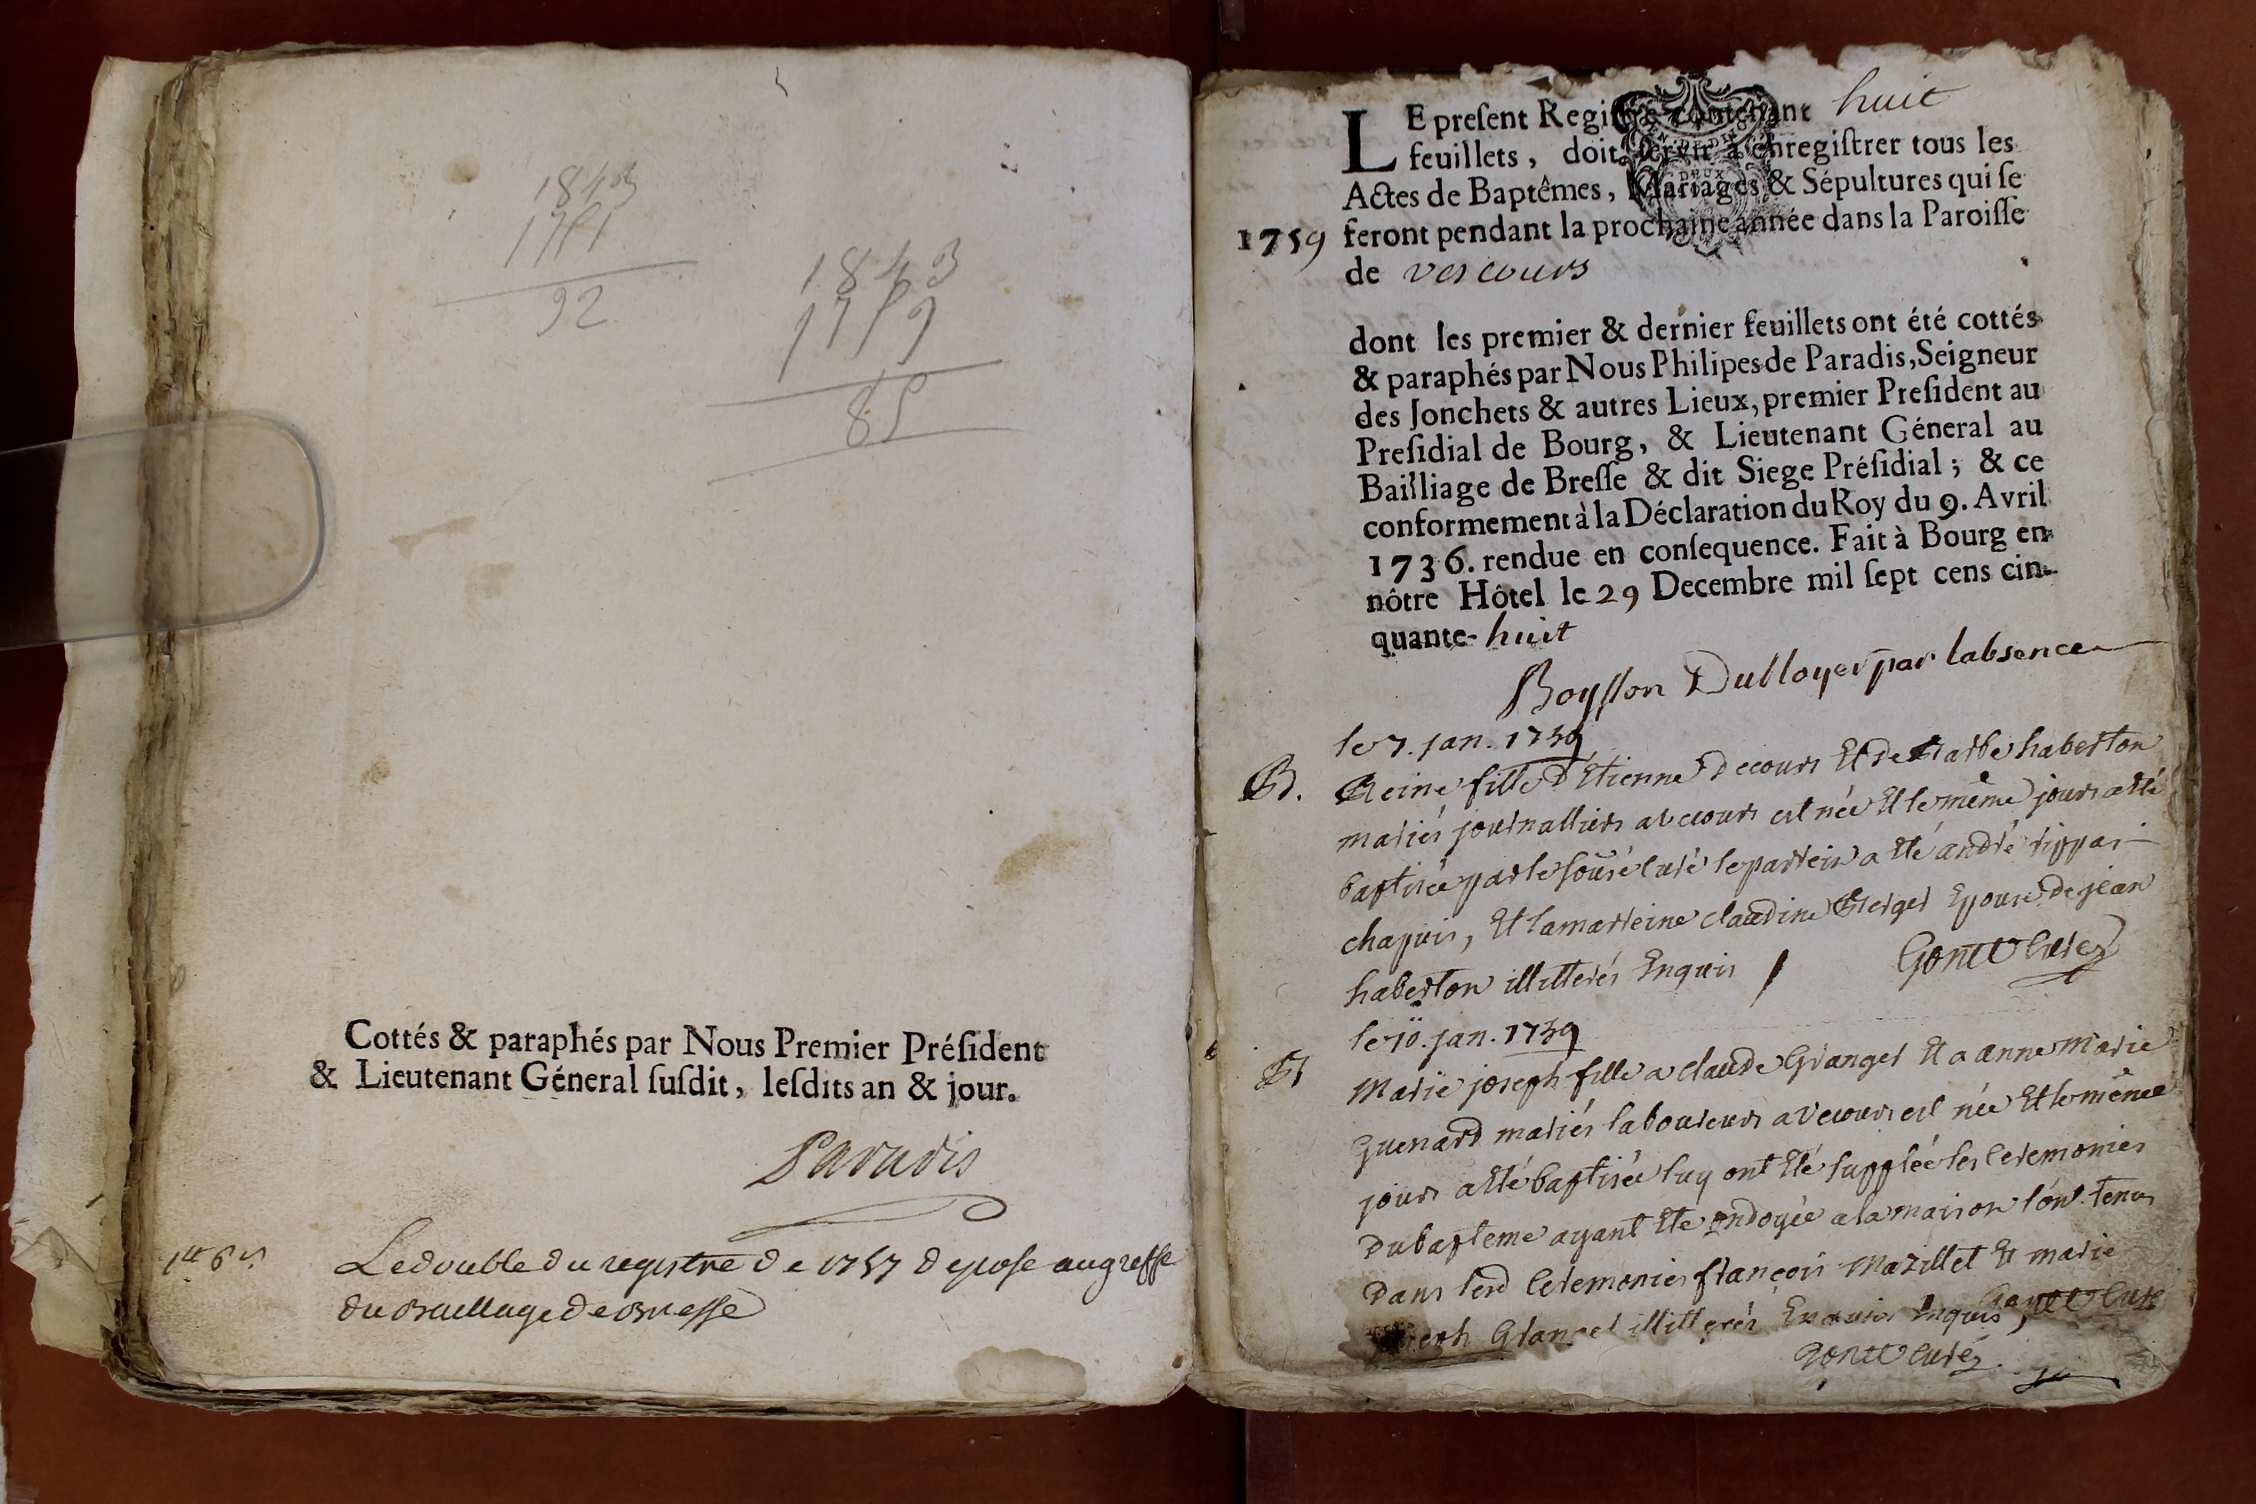 1843
1751
92
1843
1759
85
Cottés & paraphés par Nous Premier Préſident
& Lieutenant Géneral ſuſdit, leſdits an & jour.
Paradis
Le double du registre de 1757 depose au greffe
du Baillage de Bresse
LE preſent Regiſtre contenant huit
feuillets, doit ſervir à enregiſtrer tous les
Actes de Baptêmes, Mariages & Sépultures qui ſe
1759 feront pendant la prochaine année dans la Paroiſſe
de vescours
dont les premier & dernier feuillets ont été cottés
& paraphés par Nous Philipes de Paradis, Seigneur
des Jonchets & autres Lieux, premier Preſident au
Preſidial de Bourg, & Lieutenant Géneral au
Bailliage de Breſſe & dit Siege Préſidial ; & ce
conformement à la Déclaration du Roy du 9. Avril
1736. rendue en conſequence. Fait à Bourg en
nôtre Hôtel le 29 Decembre mil ſept cens cin-
quante-huit
par labsence
le 7. jan. 1759
Reine fille d'Etienne decours Et de Barbe haberton
mariés journalliers a vecours est née Et le même jour a été
baptisée par le sousé curé le parrein a été andré rippai
chapuis, Et la marreine claudine Epouse de jean
haberton illitterés Enquis
curé
le 10. jan. 1759
Marie joseph fille a claude Granger Et a anne marie
guenard mariés laboureurs a vecours est née Et le même
jour a été baptisée luy ont été supplée les ceremonies
du bapteme ayant été ondoyée a la maison l'ont tenus
dans lesd ceremonies françois Mazillet Et marie
joseph Granger illitterés Enquis
curé